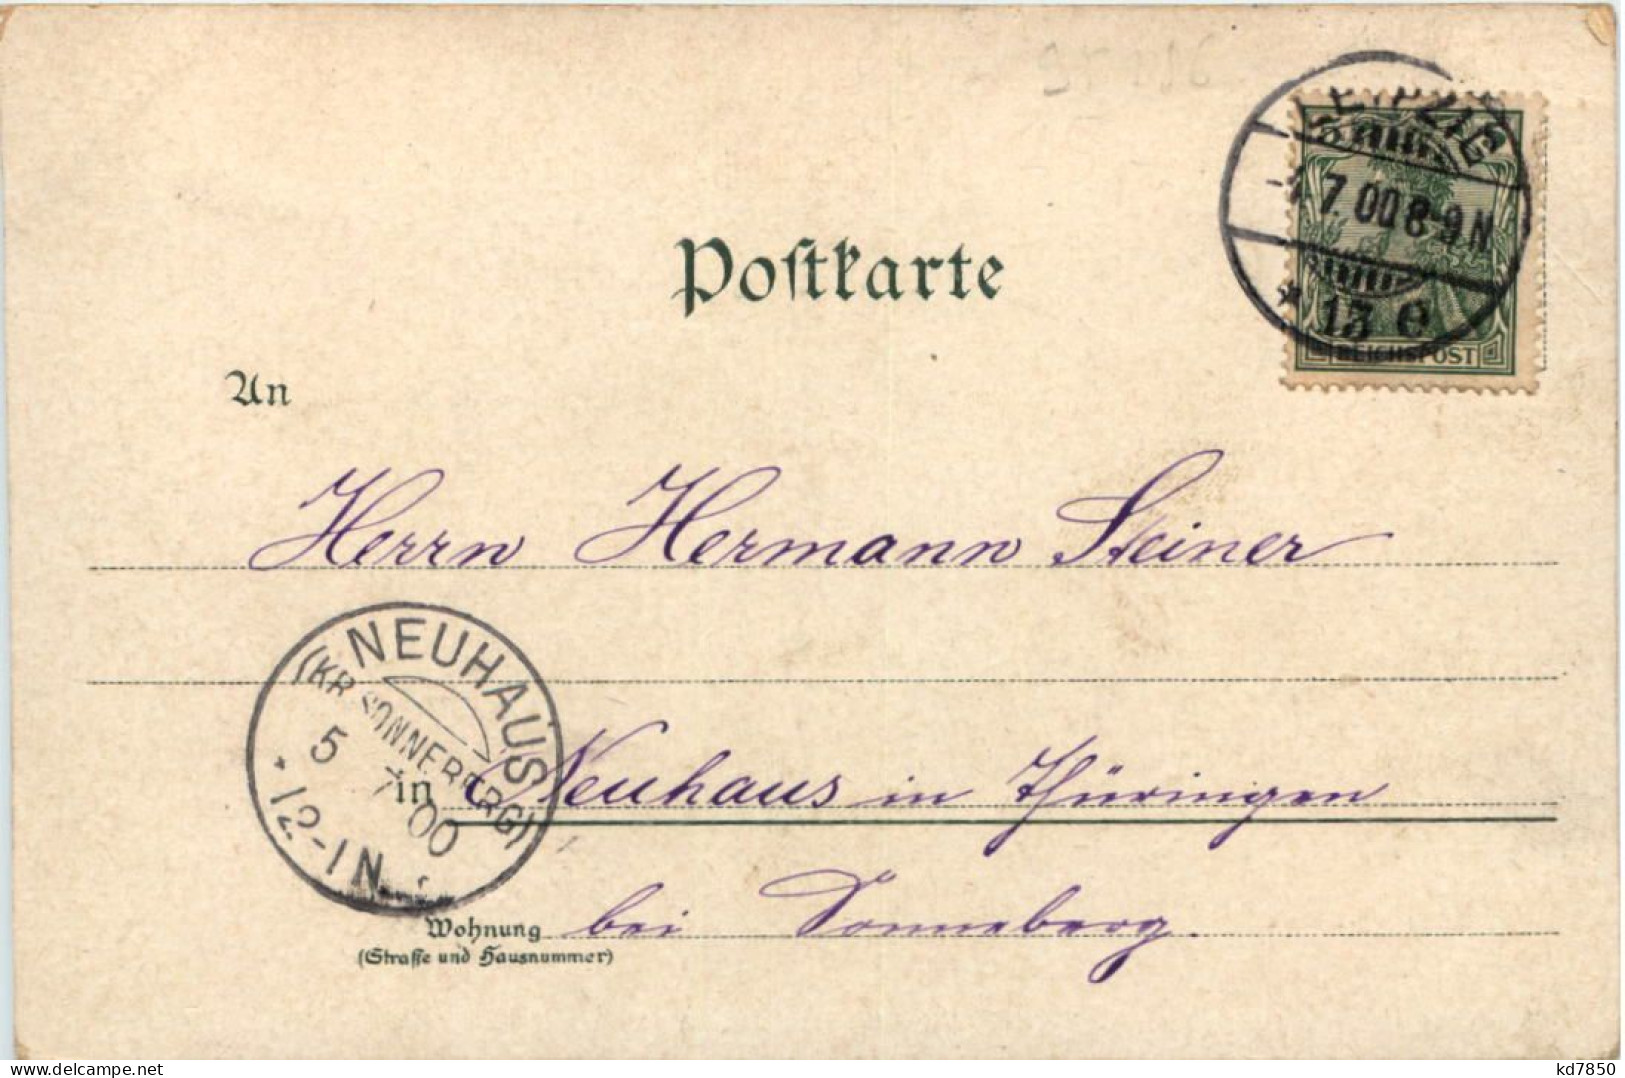 LEIPZIG
-4.7.00 8-9N
* 13 e
REICHSPOST
Postkarte
An
Herrn Hermann Steiner
NEUHAUS
(KR. SONNEBERG)
5 7 00
* 12-1N.
in Neuhaus in Thüringen
Wohnung bei Sonneberg.
(Straße und Hausnummer)
kd7850